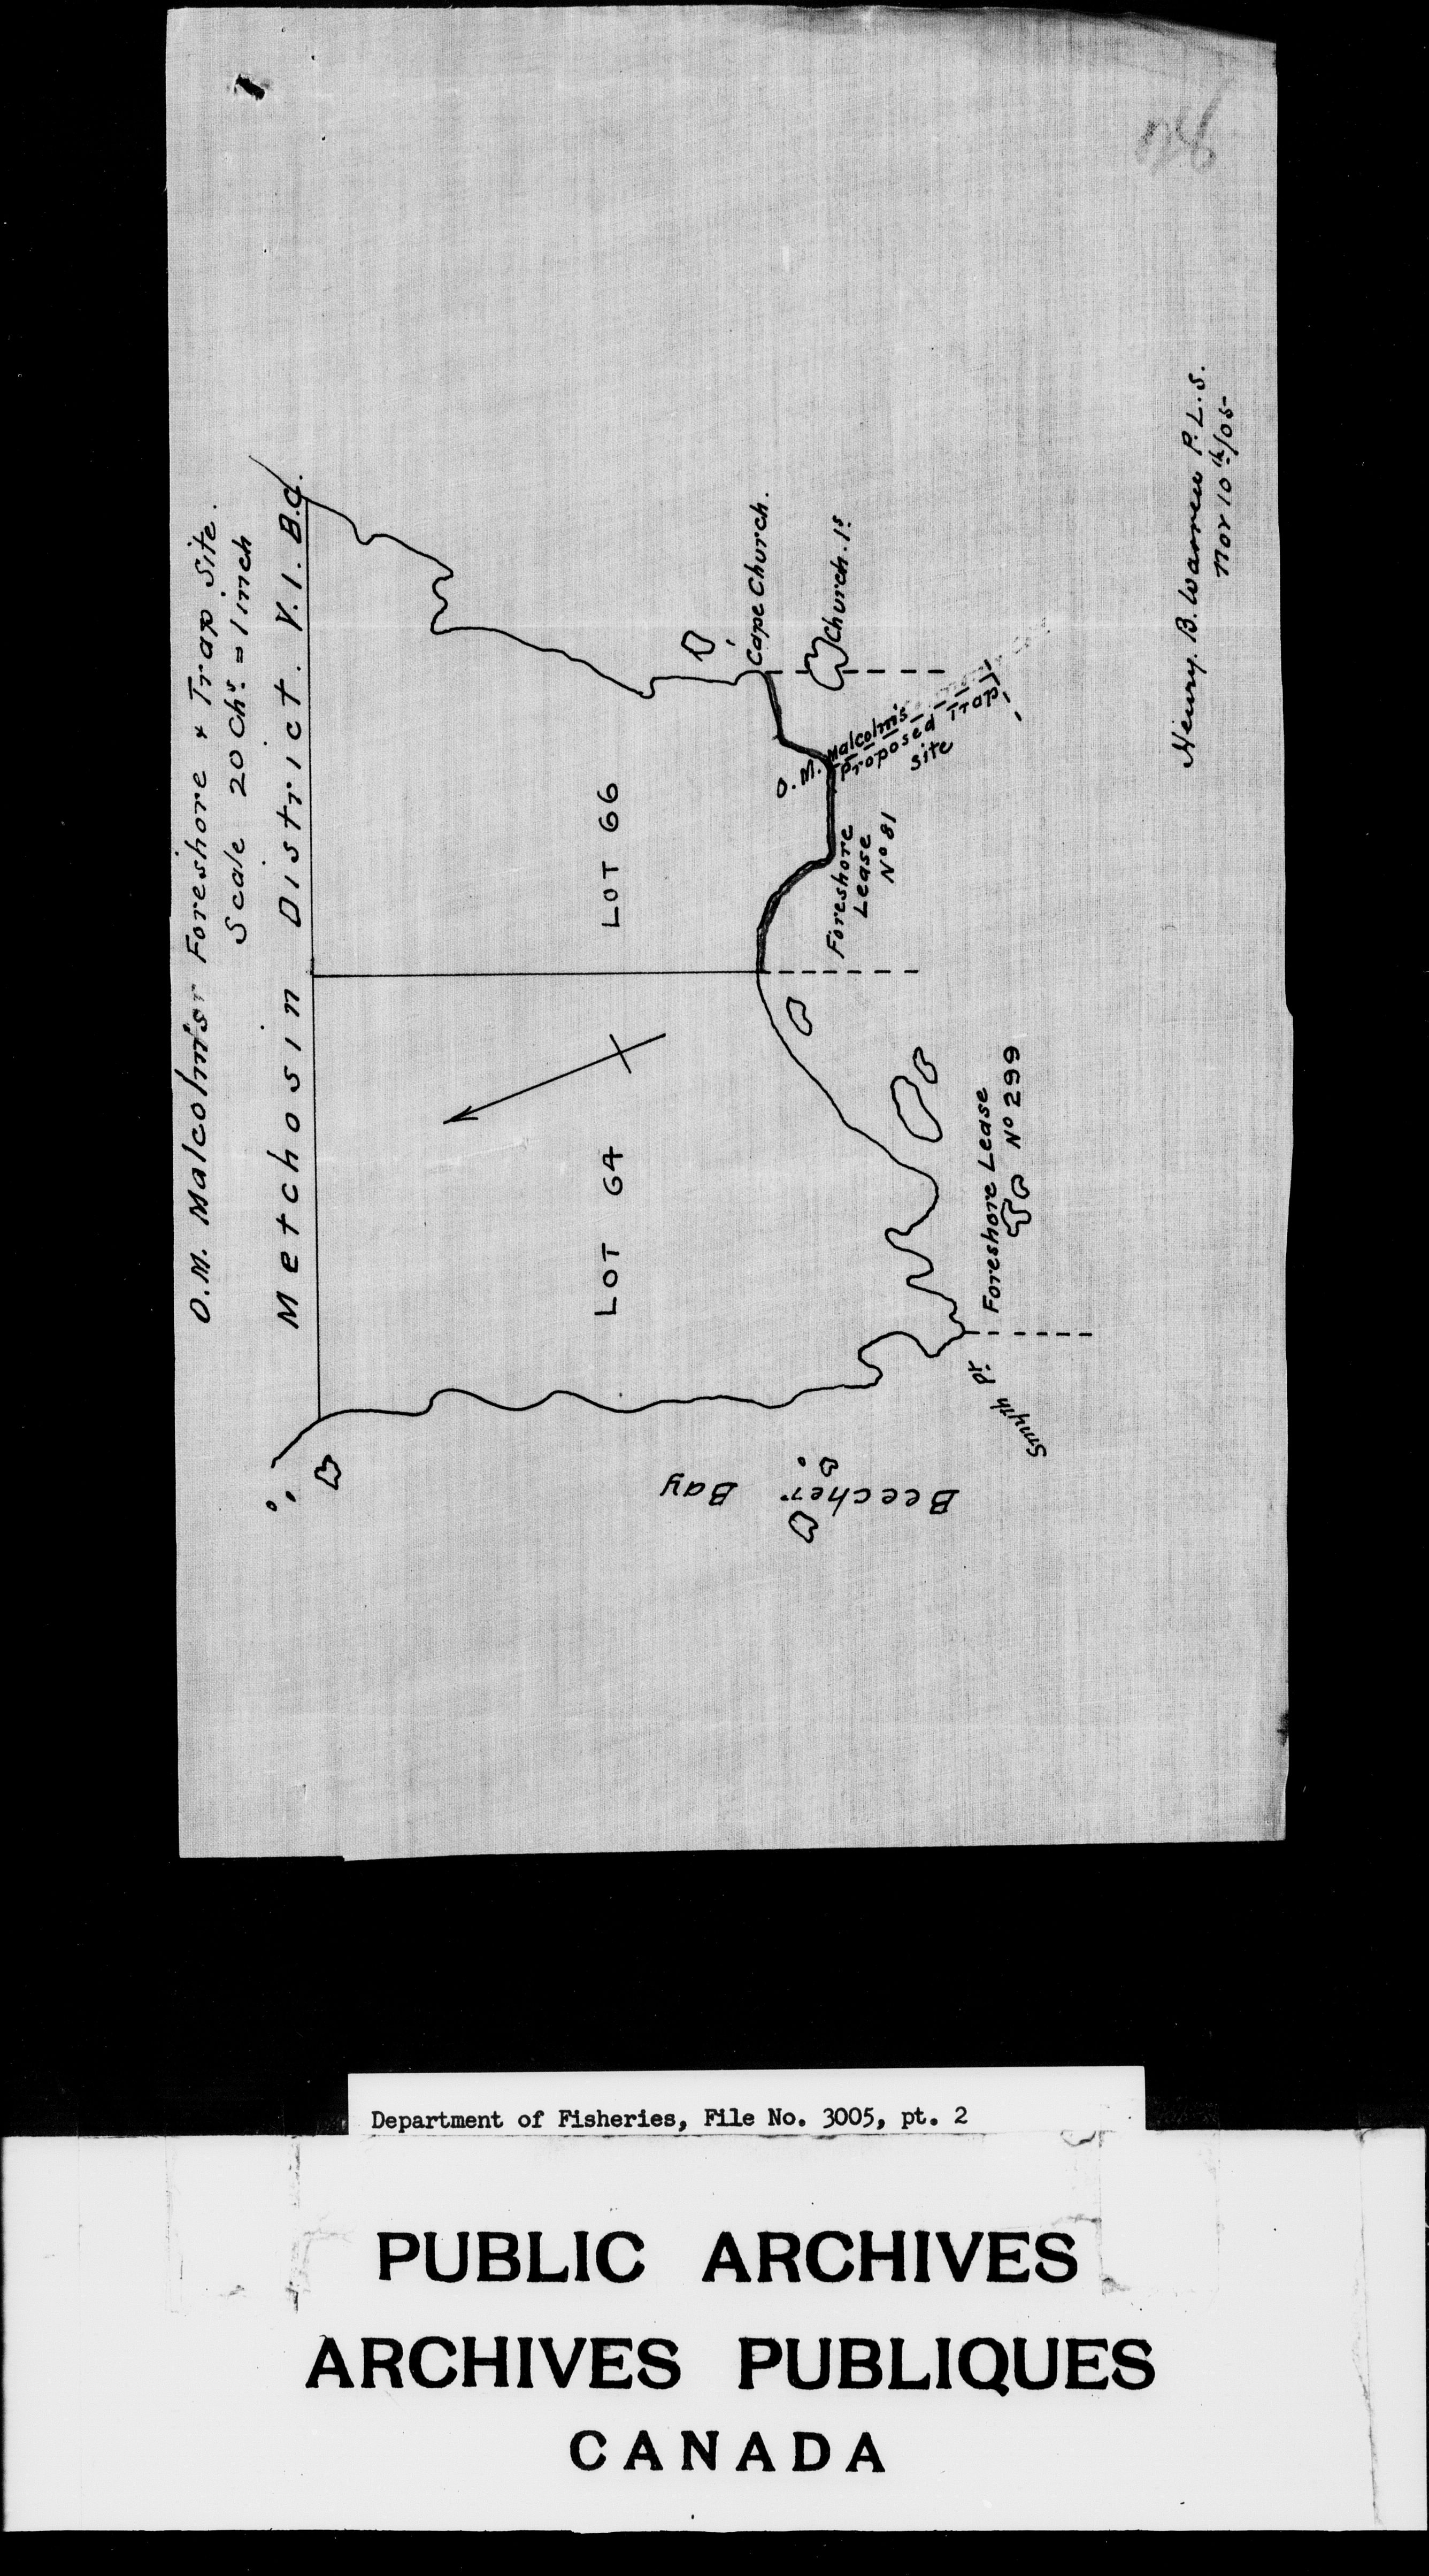 O.M. Malcolm's Foreshore & Trap Site.
Scale 20 Chs = 1 inch
Metchosin District. V.I. B.C.
LOT 66
LOT 64
Cape Church.
Church. Is
O.M. Malcolm's
Proposed Trap
Site
Foreshore
Lease
No 81
Foreshore Lease
No 299
Smyth Pt.
Beecher Bay
Henry. B. Warren P.L.S.
Nov 10th/05
Department of Fisheries, File No. 3005, pt. 2
PUBLIC ARCHIVES
ARCHIVES PUBLIQUES
CANADA